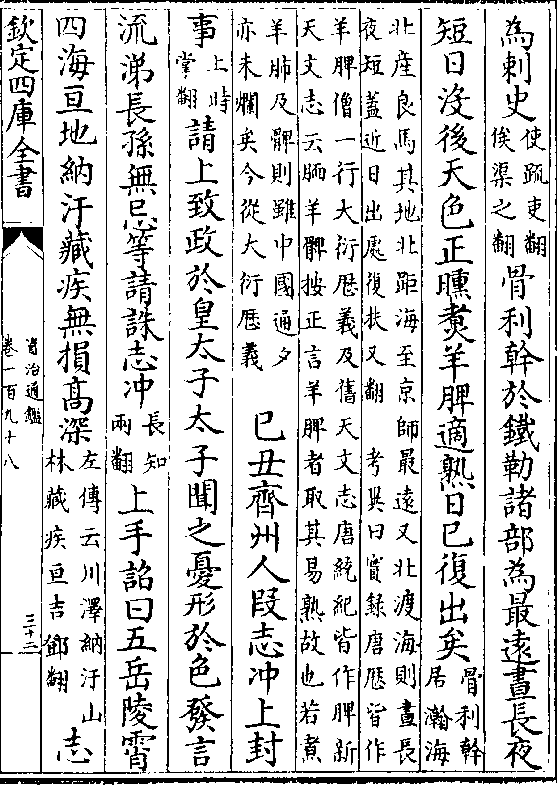 為刺史使疏吏翻俟渠之翻骨利幹於鐵勒諸部為最遠晝長夜
短日沒後天色正曛煑羊脾適熟日已復出矣骨利幹居瀚海
北産良馬其地北距海至京師最遠又北渡海則晝長
夜短蓋近日出處復扶又翻 考異曰實録唐厯皆作
羊脾僧一行大衍厯義及舊天文志唐統紀皆作脾新
天文志云胹羊髀按正言羊脾者取其易熟故也若煑
羊肺及髀則雖中國通夕
亦未爛矣今從大衍厯義
己丑齊州人段志冲上封
事上時掌翻請上致政於皇太子太子聞之憂形於色發言
流涕長孫無忌等請誅志冲長知兩翻上手詔曰五岳陵霄
四海亘地納汙藏疾無損髙深左傳云川澤納汙山林藏疾亘吉鄧翻志
欽定四庫全書
資治通鑑
卷一百九十八
三十三